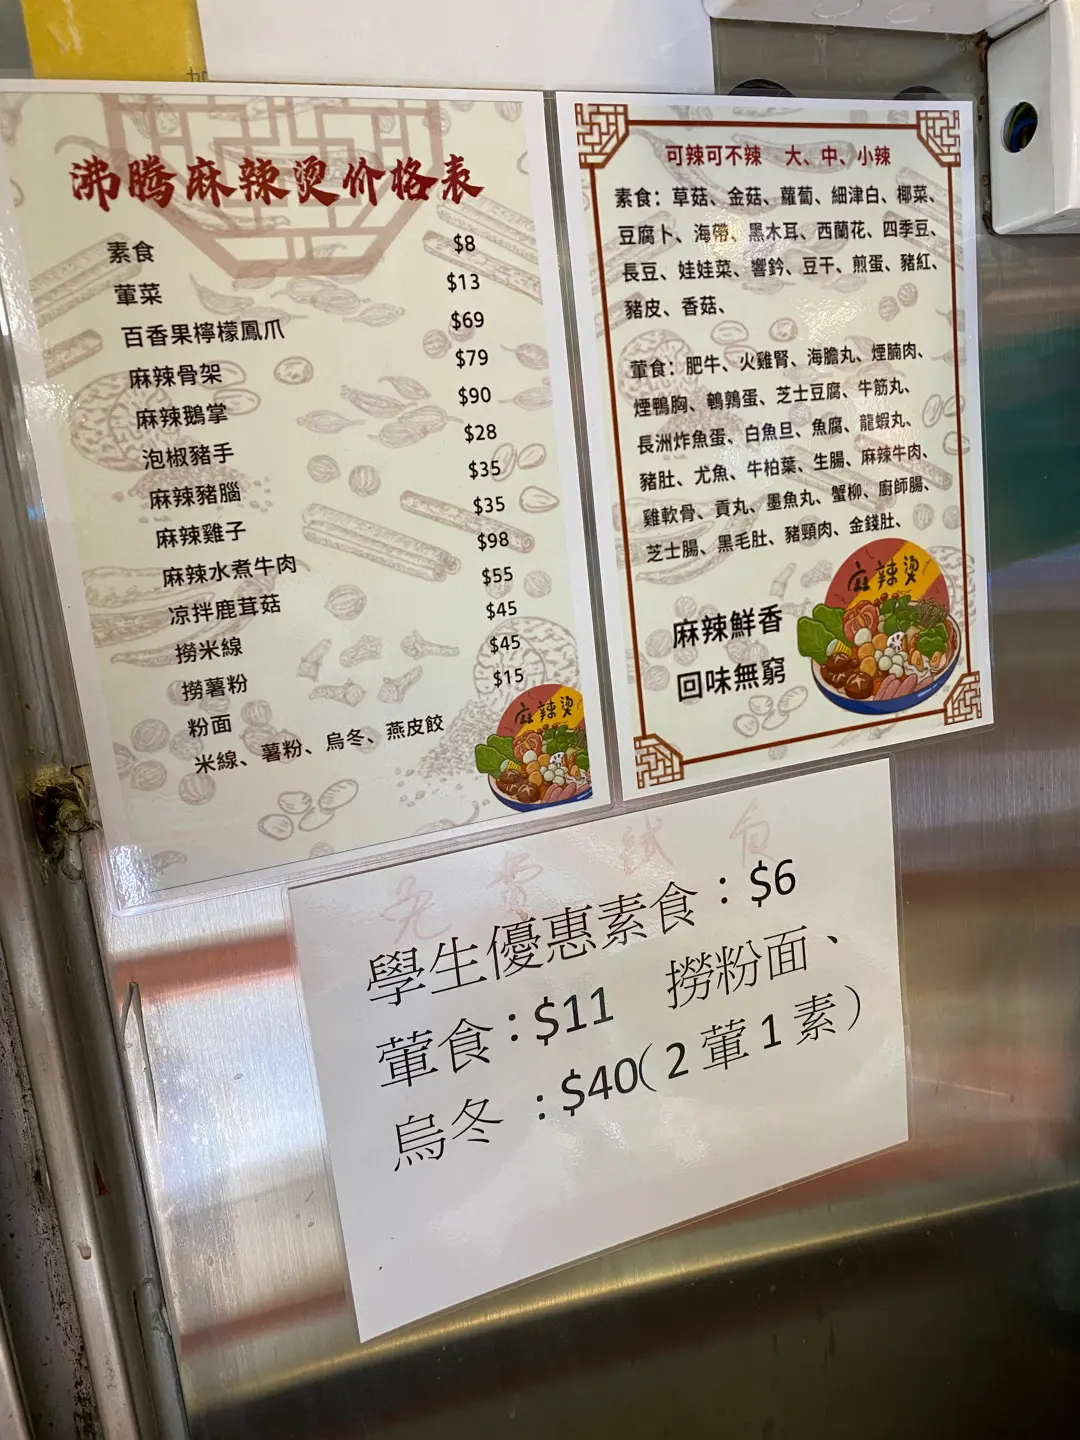 沸腾麻辣烫价格表
素食 $8
葷菜 $13
百香果檸檬鳳爪 $69
麻辣骨架 $79
麻辣鵝掌 $90
泡椒豬手 $28
麻辣豬腦 $35
麻辣雞子 $35
麻辣水煮牛肉 $98
凉拌鹿茸菇 $55
撈米線 $45
撈薯粉 $45
粉面 $15
米線、薯粉、烏冬、燕皮餃
麻辣烫
可辣可不辣 大、中、小辣
素食：草菇、金菇、蘿蔔、細津白、椰菜、
豆腐卜、海帶、黑木耳、西蘭花、四季豆、
長豆、娃娃菜、響鈴、豆干、煎蛋、豬紅、
豬皮、香菇、
葷食：肥牛、火雞腎、海膽丸、煙腩肉、
煙鴨胸、鵪鶉蛋、芝士豆腐、牛筋丸、
長洲炸魚蛋、白魚旦、魚腐、龍蝦丸、
豬肚、尤魚、牛柏葉、生腸、麻辣牛肉、
雞軟骨、貢丸、墨魚丸、蟹柳、廚師腸、
芝士腸、黑毛肚、豬頸肉、金錢肚、
麻辣鮮香
回味無窮
麻辣烫
免費試食
學生優惠素食：$6
葷食：$11 撈粉面、
烏冬：$40(2葷1素)